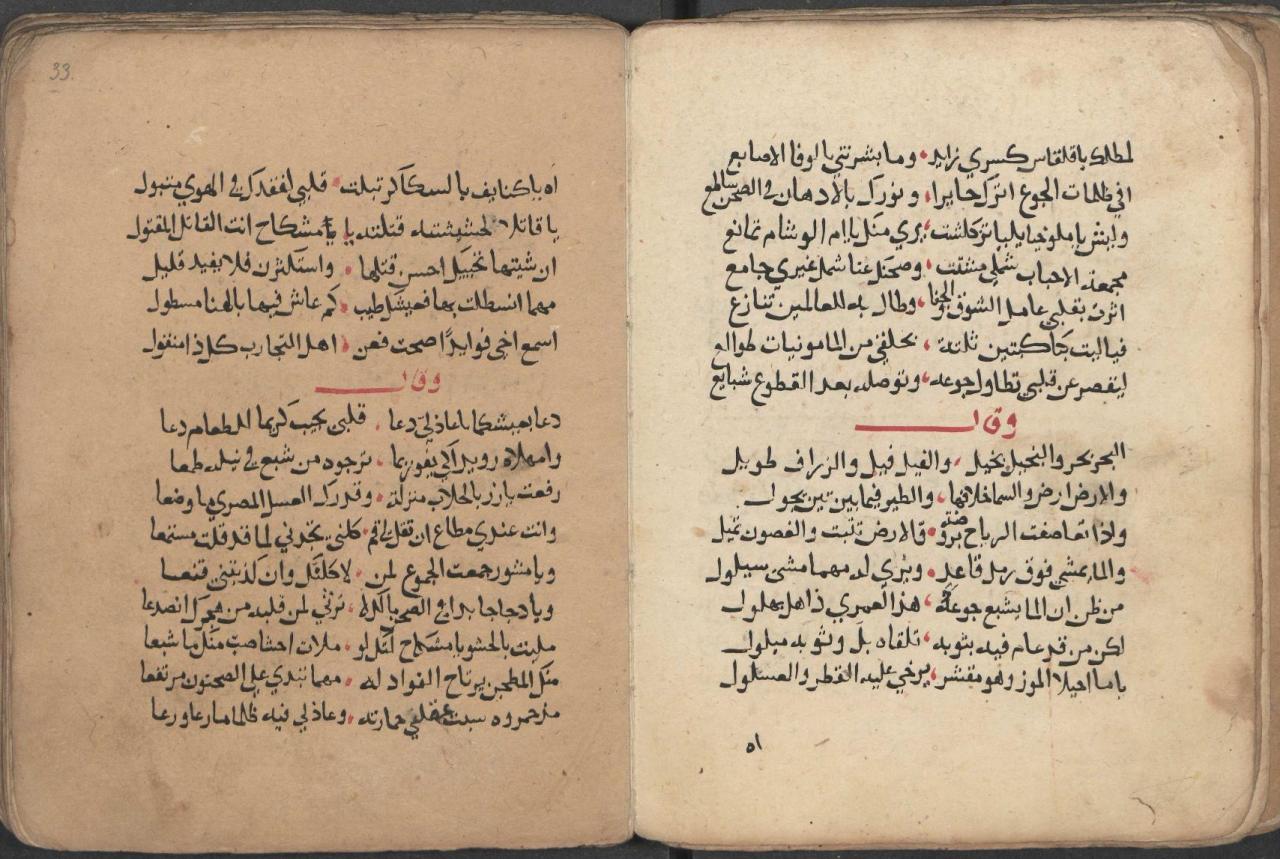 لمطلك يا قلقاس كسري زايد وما بشرتني بالوفا الاصابع
افي ظلمات الجوع اترك حايرا ونورك بالادهان في الصحن سالمع
وايش يا ملوخيا يليا تركلشت يري مثل يا ام الوشام تمانع
مجمعة الاحباب شملي مشتت وصحنك عنا شمل غيري جامع
اثرت بقلبي عامل الشوق والجفا وطال به للعالمين تنازع
فياليت ثلثة تخلفني من المامونيات طوالع
ليقصر عن قلبي تطاول جوعه وتوصله بعد القطوع شبايع
وقال
البحر بحر والنخيل نخيل والفيل فيل والزراف طويل
والارض ارض والسما خلافها والطير فيما بين تين يجول
واذا تعاصفت الرياح بروضة فالارض تثبت والغصون تميل
والما يمشي فوق رمل قاعد ويري له مهما مشي سيلول
من ظن ان الما يشبع جوعه هذا لعمري ذاهل بهلول
لكن من قد عام فيه بثوبه تلقاه بل وثوبه مبلول
ياما احيلا الموز وهو مقشر يرخي عليه القطر والعسلول
اه
33.
اه يا كنايف بالسكاكر تبلت قلبي لفقدك في الهوي متبول
يا قاتلا لحشيشته قتلته يا مشكاح انت القاتل المقتول
ان شيتها تخييل احسن قتلها واستكثرن فلا يفيد قليل
مهما انسطلت بها فعيشك طيب كم عاش فيها بالهنا مسطول
اسمع اخي فوايدا صحت فعن اهل التجارب كل ذا منقول
وقال
دعا بعيشكما يا عاذلي دعا قلبي يجيب كريما للطعام دعا
وامهلاه رويدا كي يفوز بما نرجوه من شبع في نيله طمعا
رفعت يا رز بالحلاب منزلة وقدرك العسل المصري ما وضعا
وانت عندي مطاع ان تقل لي قم كلني تجدني لما قد قلت مستمعا
ويا مشور جمعت الجوع لمن لاكلنك وان لذيتني قنعا
ويا دجاجا بدا في الصحن يا ترثي لمن قلبه من هجرك انصدعا
مليت بالحشو يا مشكاح لو ملات احشا صب مثل ما شبعا
مثل المطجن يرتاح الفواد له مهما تبدي علي الصحنون مرتفعا
مزحمروه سبت عقلي حمارته وعاذلي فيه ظلما ما رعا ورعا